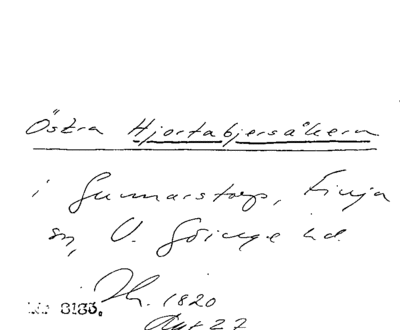 Östra Hjortabjersåkern
i Gunnarstorp, Finja
sn, V. Göinge hd.
Lh. 1820
8183.
Akt 27